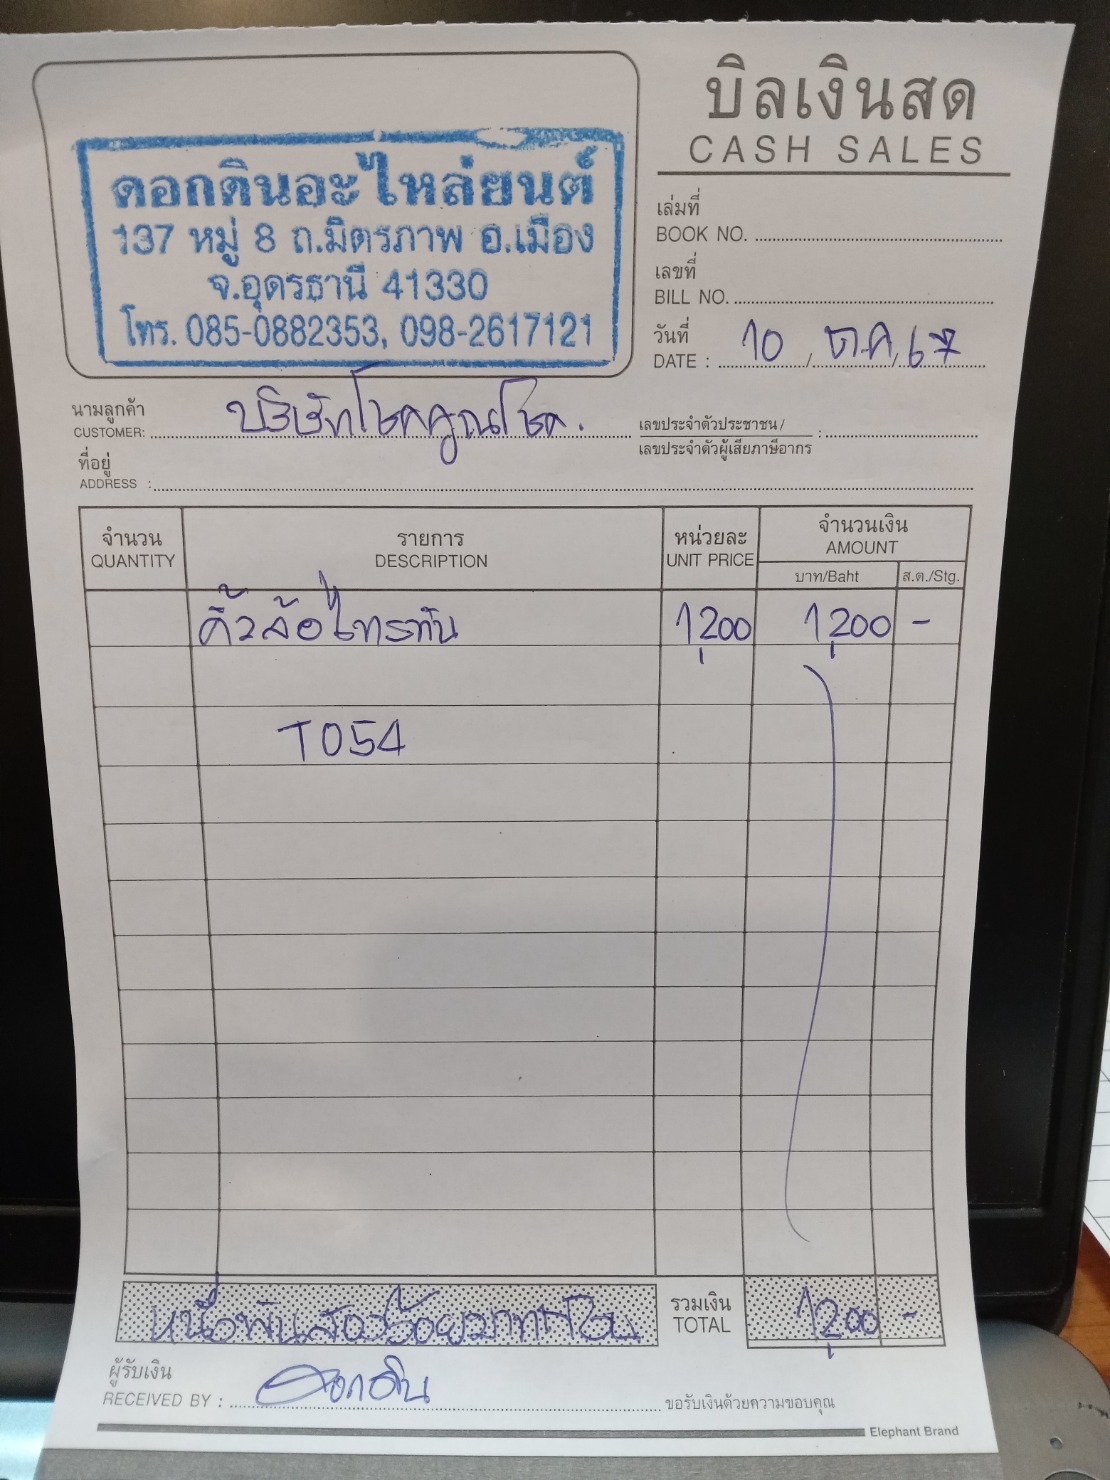 บิลเงินสด
CASH SALES
ดอกดินอะไหล่ยนต์
137 หมู่ 8 ถ.มิตรภาพ อ.เมือง
จ.อุดรธานี 41330
โทร. 085-0882353, 098-2617121
เล่มที่
BOOK NO.
เลขที่
BILL NO.
วันที่
DATE : 10 / ต.ค. / 67
นามลูกค้า
CUSTOMER: บริษัทโชคคูณโชค.
เลขประจำตัวประชาชน/
เลขประจำตัวผู้เสียภาษีอากร :
ที่อยู่
ADDRESS :
จำนวน รายการ หน่วยละ จำนวนเงิน
QUANTITY DESCRIPTION UNIT PRICE AMOUNT
บาท/Baht ส.ต./Stg.
คิ้วล้อไทรทัน 1,200 1,200 -
T054
หนึ่งพันสองร้อยบาทถ้วน รวมเงิน TOTAL 1,200 -
ผู้รับเงิน
RECEIVED BY : ดอกดิน ขอรับเงินด้วยความขอบคุณ
Elephant Brand